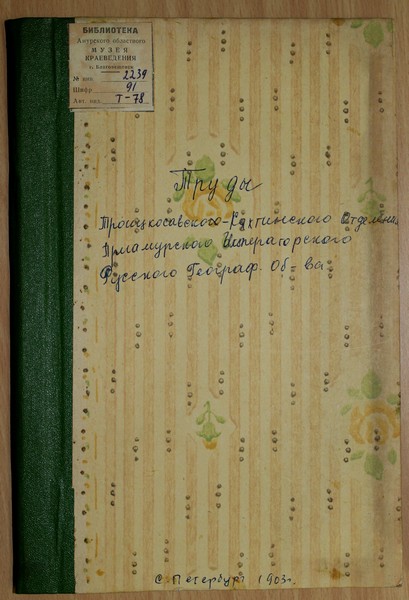 БИБЛИОТЕКА
Амурского областного
МУЗЕЯ
КРАЕВЕДЕНИЯ
г. Благовещенск
№ инв. 2239
Шифр 91
Авт. зн. Т-78
Труды
Троицкосавского-Кяхтинского Отделения
Приамурского Императорского
Русского Географ. Об-ва.
С. Петербург 1903г.